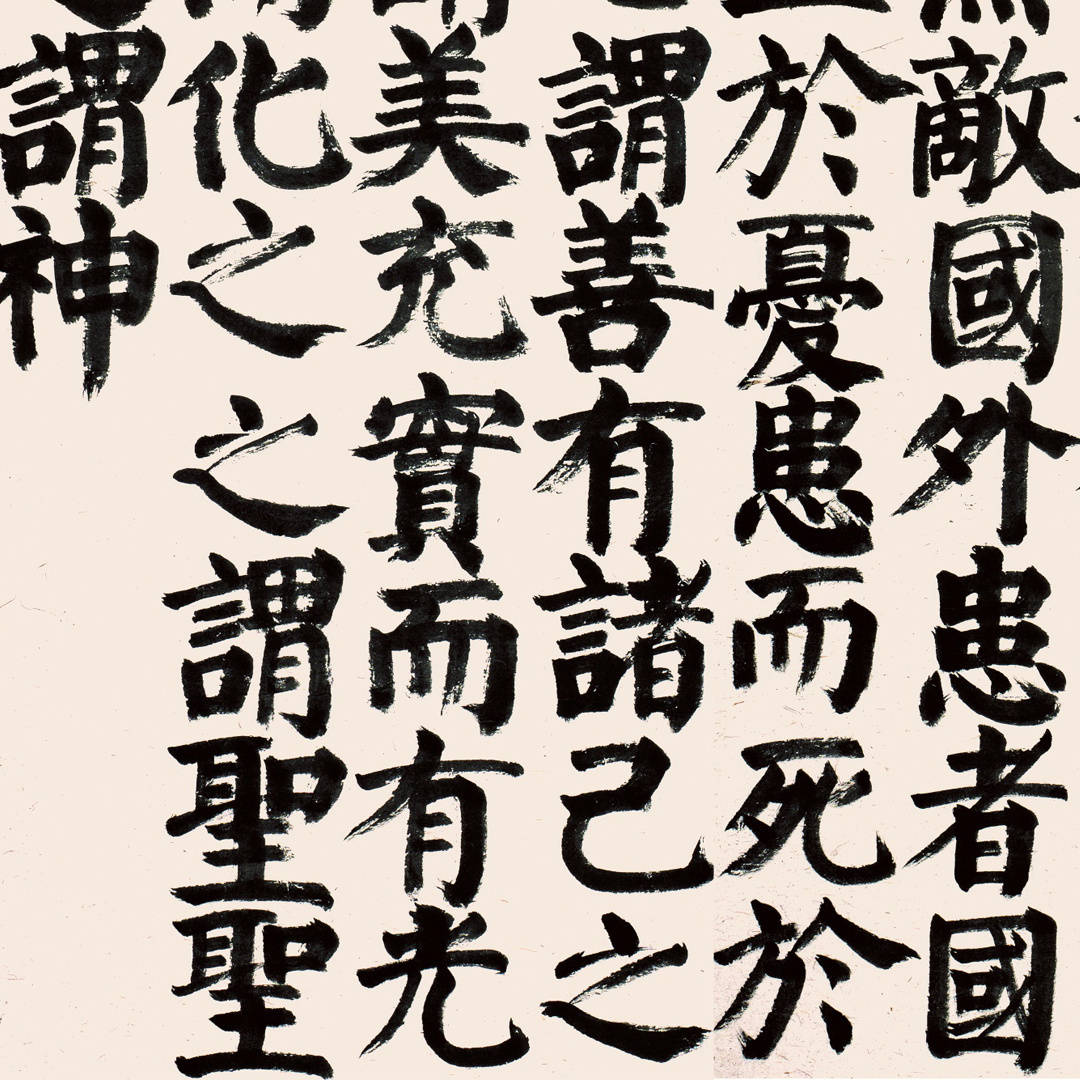 敵國外患者國
於憂患而死於
謂善有諸己之
美充實而有光
化之之謂聖聖
謂神